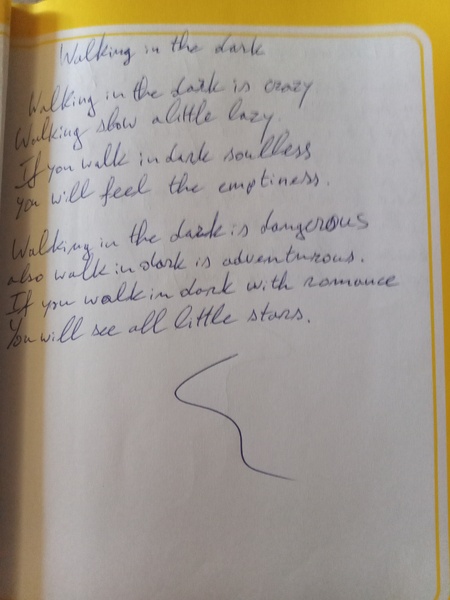 Walking in the dark
Walking in the dark is crazy
Walking slow alittle lazy.
If you walk in dark soulless
you will feel the emptiness.
Walking in the dark is dangerous
also walk in dark is adventurous.
If you walk in dark with romance
You will see all little stars.